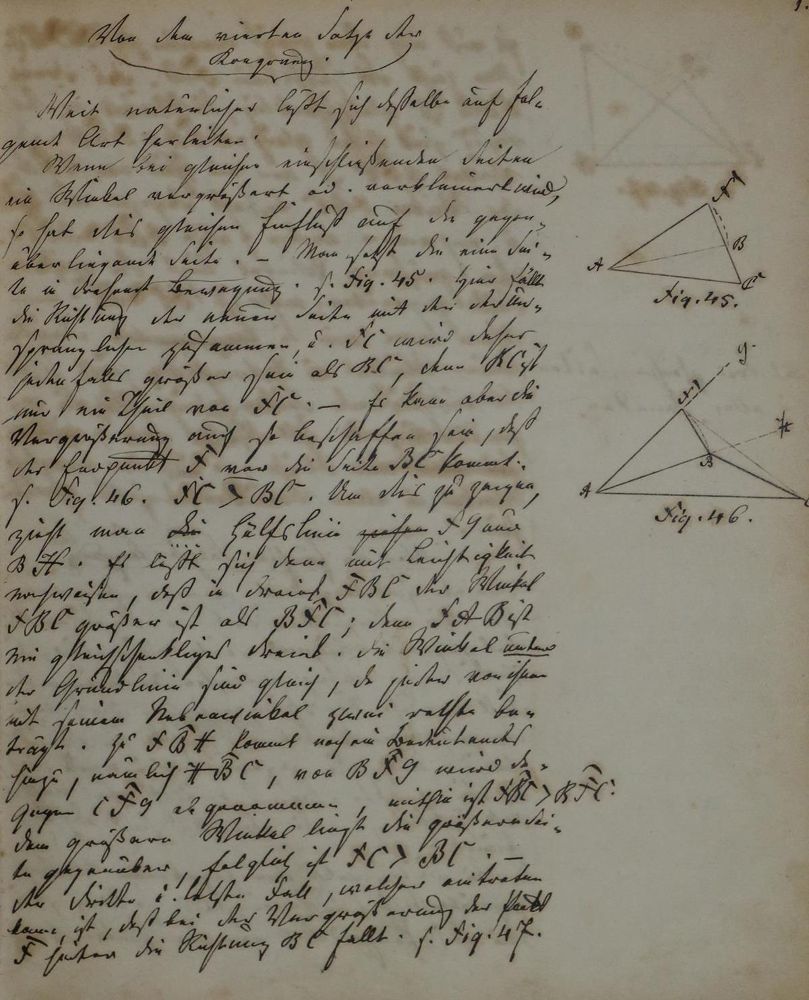 Von dem vierten Satze der
Kongruenz.
Weit natürlicher läßt sich derselbe auf fol-
gende Art herleiten.
Wenn bei gleichen einschließenden Seiten
ein Winkel vergrößert od. verkleinert wird,
so hat dies gleichen Einfluß auf die gegen-
überliegende Seite. – Man setzt die eine Sei-
te in drehende Bewegung. s. Fig. 45. Hier fällt
die Richtung der neuen Seite mit der der ur-
sprünglichen zusammen, u. FC wird daher
jedenfalls größer sein als BC, denn BC ist
nur ein Theil von FC. – Es kann aber die
Vergrößerung auch so beschaffen sein, daß
der Endpunkt F vor die Seite BC kommt.
s. Fig. 46. FC > BC. Um dies zu zeigen,
zieht man die Hülfslinie ziehen FG und
BH. Es läßt sich dann mit Leichtigkeit
nachweisen, daß in dreieck FBC der Winkel
FBC größer ist als BFC; denn FAB ist
ein gleichschenkliges dreieck. die Winkel unter
der Grundlinie sind gleich, da jeder von ihnen
mit seinem Nebenwinkel zwei rechte be-
trägt. Zu FBH kommt noch ein Bedeutendes
hinzu, nämlich HBC, von BFG wird da-
gegen CFG abgenommen, mithin ist FBC > BFC.
dem größern Winkel liegt die größere Sei-
te gegenüber, folglich ist FC > BC. –
der dritte u. letzte Fall, welcher eintreten
kann, ist, daß bei der Vergrößerung der Punkt
F hinter die Richtung BC fällt. s. Fig. 47.
A
F
B
C
Fig. 45.
G
F
H
B
A
Fig. 46.